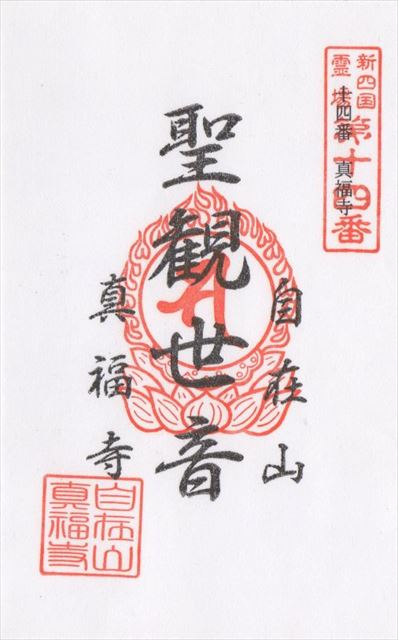 新四国
霊場
第十四番
十四番 真福寺
自在山
聖観世音
真福寺
自在山
真福寺